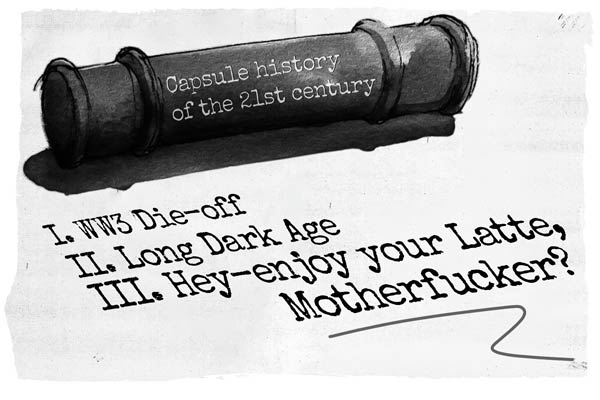 Capsule history
of the 21st century
I. WW3 Die-off
II. Long Dark Age
III. Hey-enjoy your Latte,
Motherfucker?